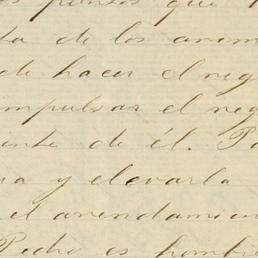 que
ta de los anim
de hacer el reg
mpulsar el reg
inte de él. Pa
na y elevarla
el arrendamien
Pedro es hombre